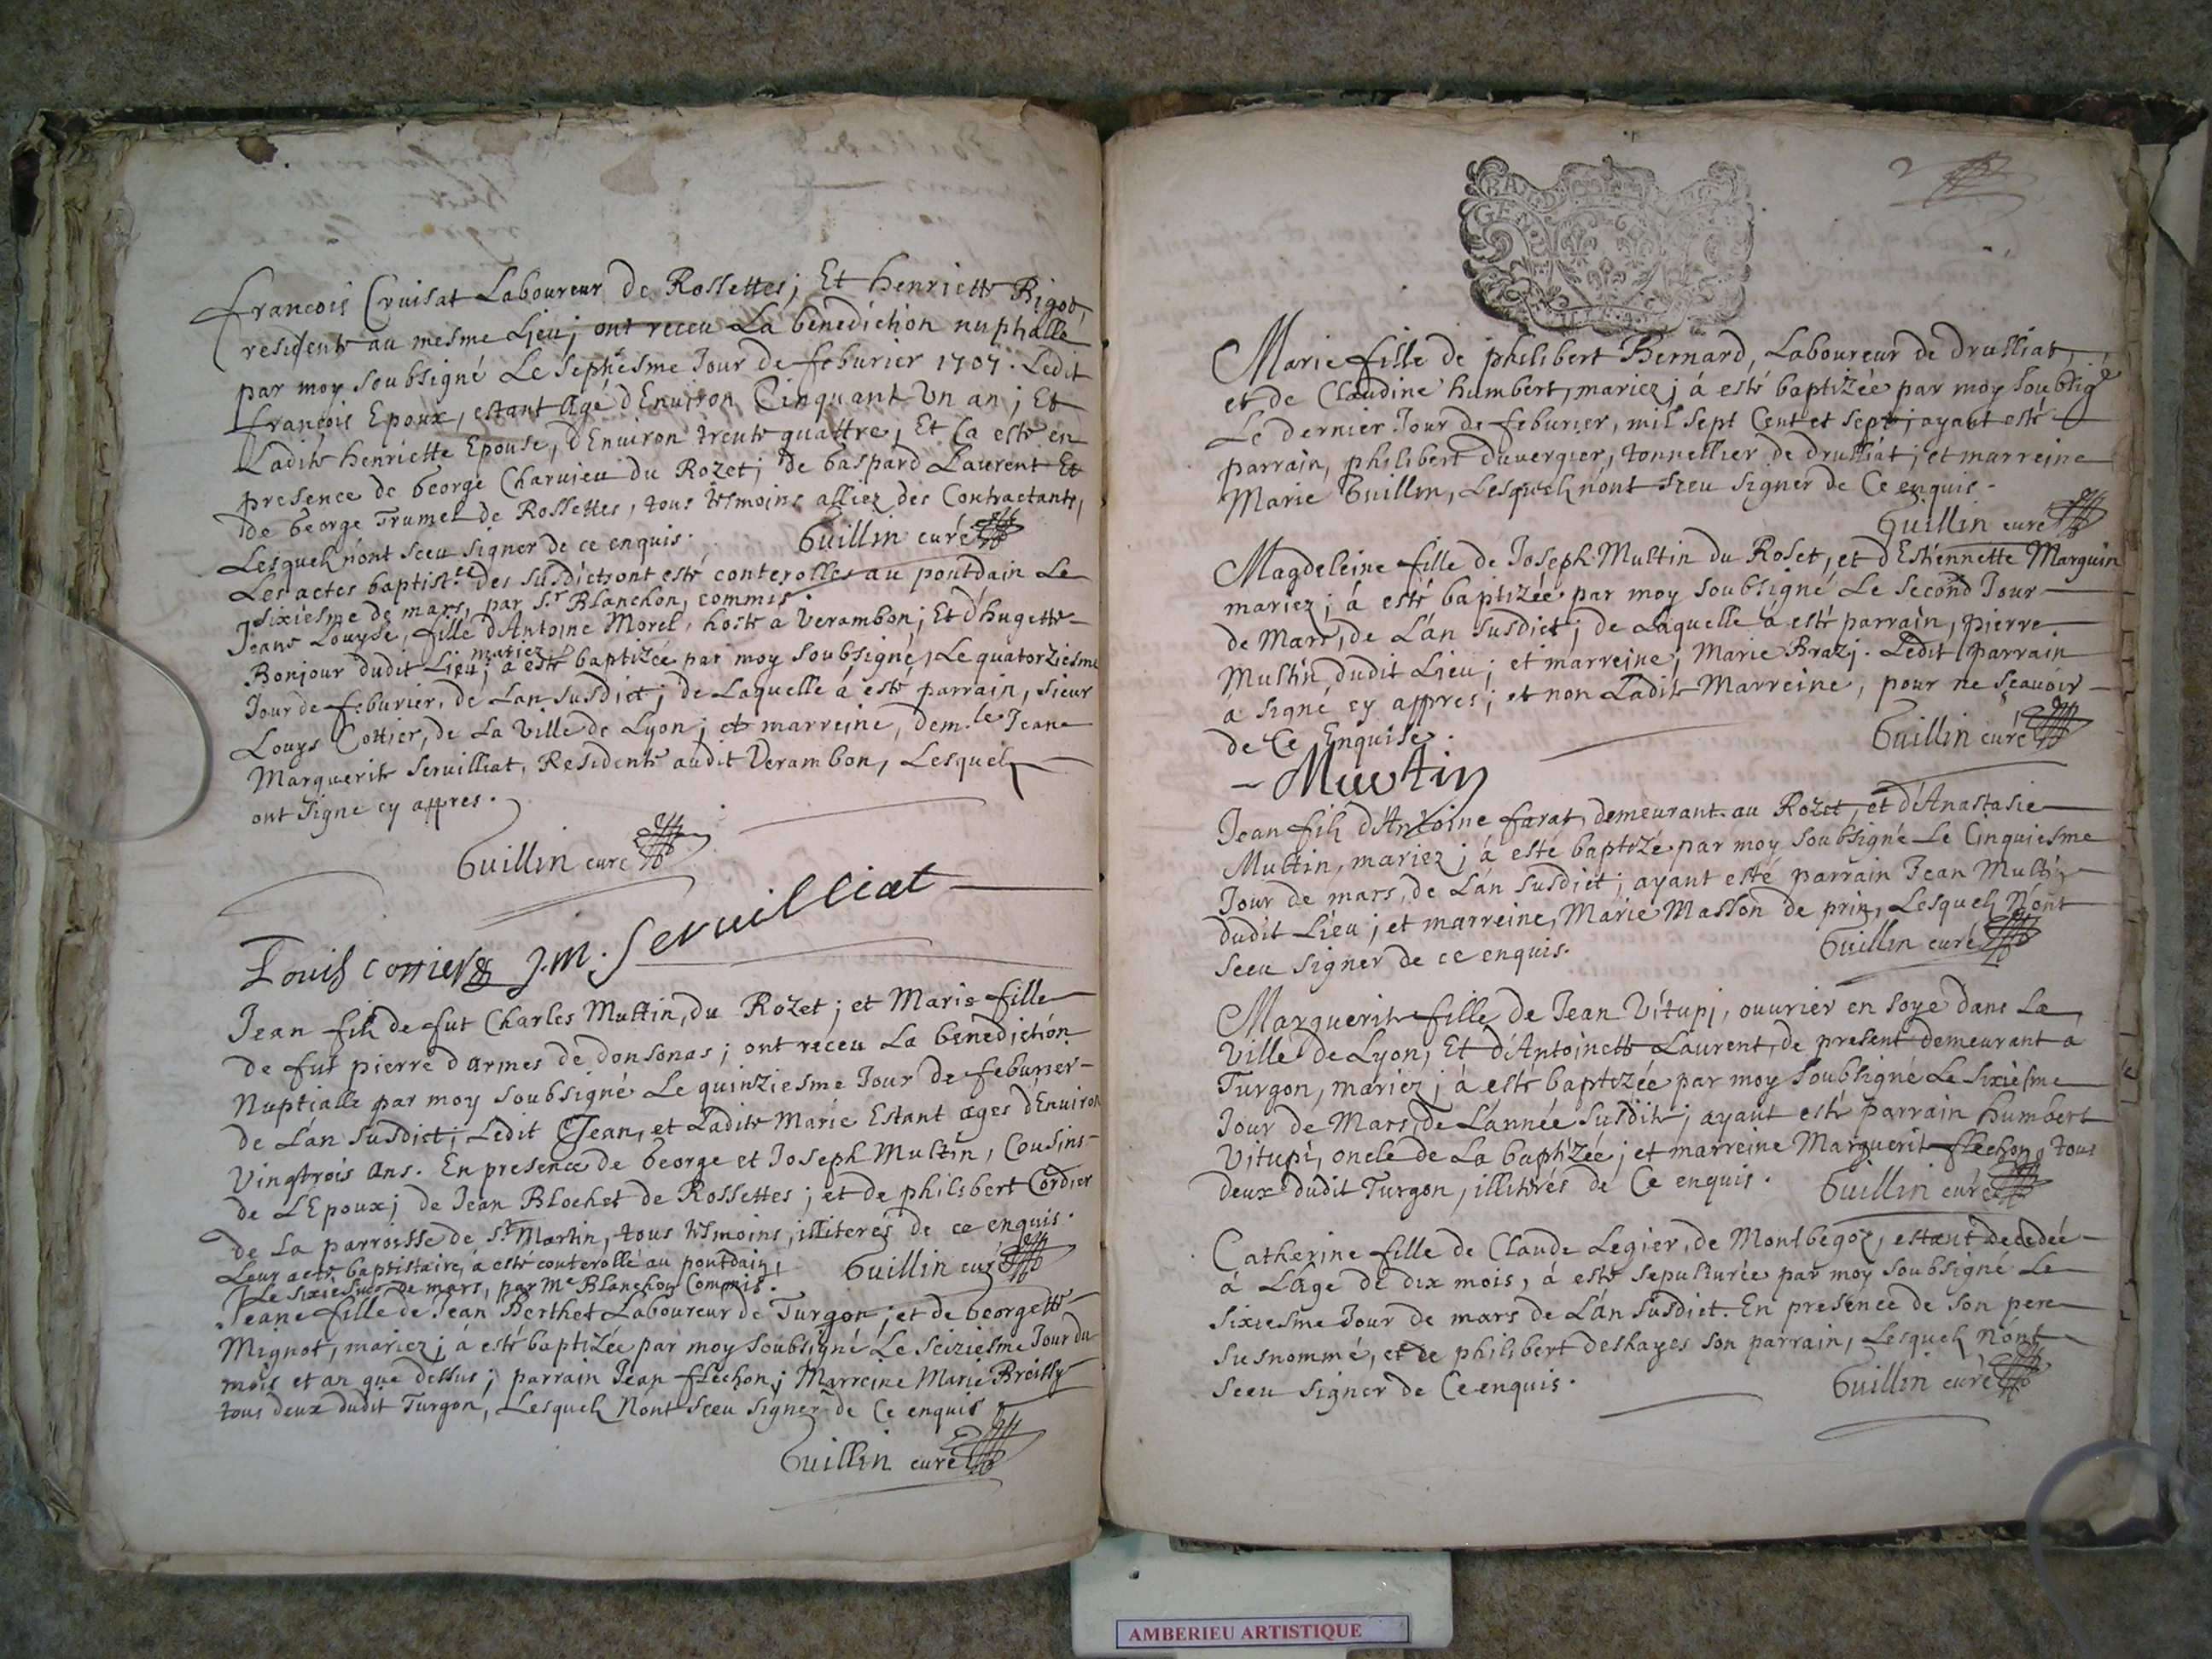 francois Cruisat Laboureur de Rossettes; Et henriette Bigot,
residente au mesme Lieu; ont receu La benediction nuphalle
par moy soubsigné Le sephesme Jour de feburier 1707. Ledit
francois Epoux, estant Agé d'Environ Cinquant Un an; Et
Ladite henriette Epouse, d'Environ trente quattre, Et Ca esté en
presence de George Charvieu du Rozet; de Gaspard Laurent Et
de George Trumel de Rossettes, tous tesmoins alliez des Contractants,
Lesquels n'ont sceu signer de ce enquis.
Guillin curé
Les actes baptist.res des susdicts ont esté conterollés au pontdain Le
sixiesme de mars, par S.r Blanchon, commis.
Jeane Louyse, fille d'Antoine Morel, hoste a Verambon; Et d'hugette
mariez
Bonjour dudit Lieu; a esté baptizée par moy soubsigné, Le quatorziesme
Jour de feburier, de Lan susdict; de Laquelle á esté parrain, sieur
Louys Cottier, de La Ville de Lyon; et marreine, dem.le Jeane
Marguerite Servilliat, Residente audit Verambon, Lesquels
ont signé cy appres.
Guillin curé
Louis cottier J.M. Servilliat
Jean fils de fut Charles Multin, du Rozet; et Marie fille
de fut pierre d'armes de donsonas; ont receu La benediction
Nuptialle par moy soubsigné Le quinziesme Jour de feburier
de L'an susdict; Ledit Jean, et Ladite Marie Estant ages d'Environ
Vingtrois ans. En presence de George et Joseph Multin, Cousins
de L'Epoux; de Jean Blochet de Rossettes; et de philibert Cordier
de La parroisse de S.t Martin, tous tesmoins, illiterés de ce enquis.
Leur acte baptistaire, á esté conterollé au pontdain,
Guillin curé
Le sixiesme de mars, par M.e Blanchon Commis.
Jeane fille de Jean Berthet Laboureur de Turgon; et de Georgette
Mignot, mariez; á esté baptizée par moy soubsigné Le seiziesme Jour du
mois et an que dessus; parrain Jean flechon; Marreine Marie Breilly
tous deux dudit Turgon, Lesquels N'ont sceu signer de Ce enquis
Guillin curé
2
GEN
Marie fille de philibert Bernard, Laboureur de druillat,
et de Claudine humbert, mariez; á esté baptizée par moy soubsigé
Le dernier Jour de feburier, mil sept Cent et sept; ayant esté
parrain, philibert duvergier, tonnellier de druillat; et marreine
Marie Guillin, Lesquels n'ont sceu signer de Ce enquis.
Guillin curé
Magdeleine fille de Joseph Multin du Roset, et d'Estiennette Marguin
mariez; á esté baptizée par moy soubsigné Le second Jour
de Mars, de L'an susdict; de Laquelle á esté parrain, pierre
Multin, dudit Lieu; et marreine; Marie Brazi. Ledit parrain
a signé cy appres; et non Ladite Marreine, pour ne sçavoir
de Ce Enquise.
Guillin curé
Mustin
Jean fils d'Antoine farat, demeurant au Rozet, et d'Anastasie
Multin, mariez; á esté baptizé par moy soubsigné Le Cinquiesme
Jour de mars, de L'an susdict; ayant esté parrain Jean Multin
dudit Lieu; et marreine, Marie Masson de prin, Lesquels N'ont
sceu signer de ce enquis.
Guillin curé
Marguerite fille de Jean Vitupi, ouvrier en soye dans La
Ville de Lyon, Et d'Antoinette Laurent, de present demeurant a
Turgon, mariez; á esté baptizée par moy soubsigné Le sixiesme
Jour de Mars, de L'année susdite; ayant esté parrain humbert
Vitupi, oncle de La baptizée; et marreine Marguerite flechon, tous
deux dudit Turgon, illiterés de Ce enquis.
Guillin curé
Catherine fille de Claude Legier, de Montbegoz, estant decedée
á L'âge de dix mois, á esté sepulturée par moy soubsigné Le
sixiesme Jour de mars de L'an susdict. En presence de son pere
susnommé, et de philibert deshayes son parrain, Lesquels N'ont
sceu signer de Ce enquis.
Guillin curé
AMBERIEU ARTISTIQUE